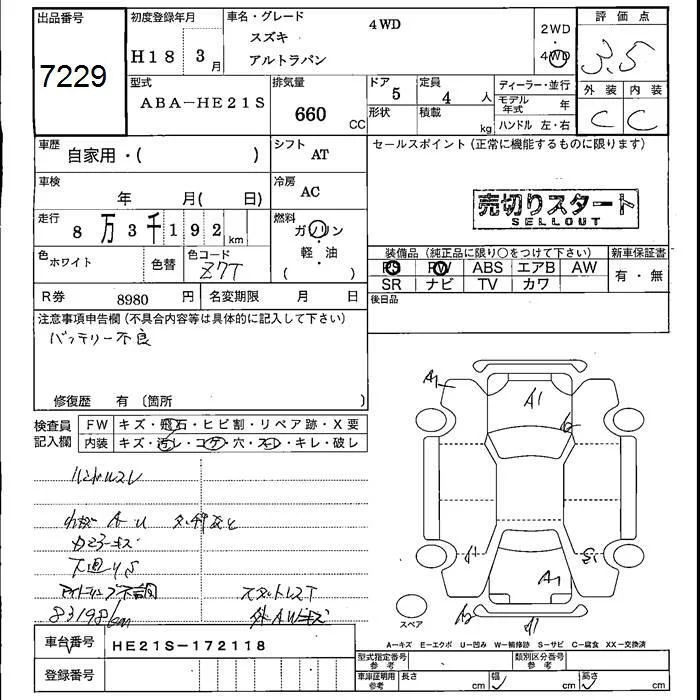 出品番号
7229
初度登録年月
H18 3月
車名・グレード
スズキ 4WD
アルトラパン
2WD
4WD
評価点
3.5
外装 内装
C C
型式
ABA-HE21S
排気量
660 CC
ドア 5
定員 4 人
形状
積載 kg
ディーラー・並行
モデル年式 年
ハンドル 左・右
車歴
自家用・( )
シフト
AT
セールスポイント(正常に機能するものに限ります)
車検
年 月( 日)
冷房
AC
売切りスタート
SELLOUT
走行
8万3千192km
燃料
ガソリン
軽・油
( )
色
ホワイト
色替
色コード
Z7T
装備品(純正品に限り○をつけて下さい)
新車保証書
PS PW ABS エアB AW
SR ナビ TV カワ
有・無
R券 8980 円
名変期限 月 日
後日品
注意事項申告欄(不具合内容等は具体的に記入して下さい)
バッテリー不良
修復歴 有(箇所 )
検査員
記入欄
FW キズ・飛石・ヒビ割・リペア跡・X要
内装 キズ・汚レ・コゲ・穴・スレ・キレ・破レ
ハンドルスレ
A-U
キズ
下廻りS
不調
スタットレスT
83198km
外AWキズ
A1
A1
A1
スペア
A-キズ E-エクボ U-凹み W-補修跡 S-サビ C-腐食 XX-交換済
車台番号
HE21S-172118
登録番号
型式指定番号
参考
類別区分番号
参考
車庫証明用
参考
長さ cm
幅 cm
高さ cm